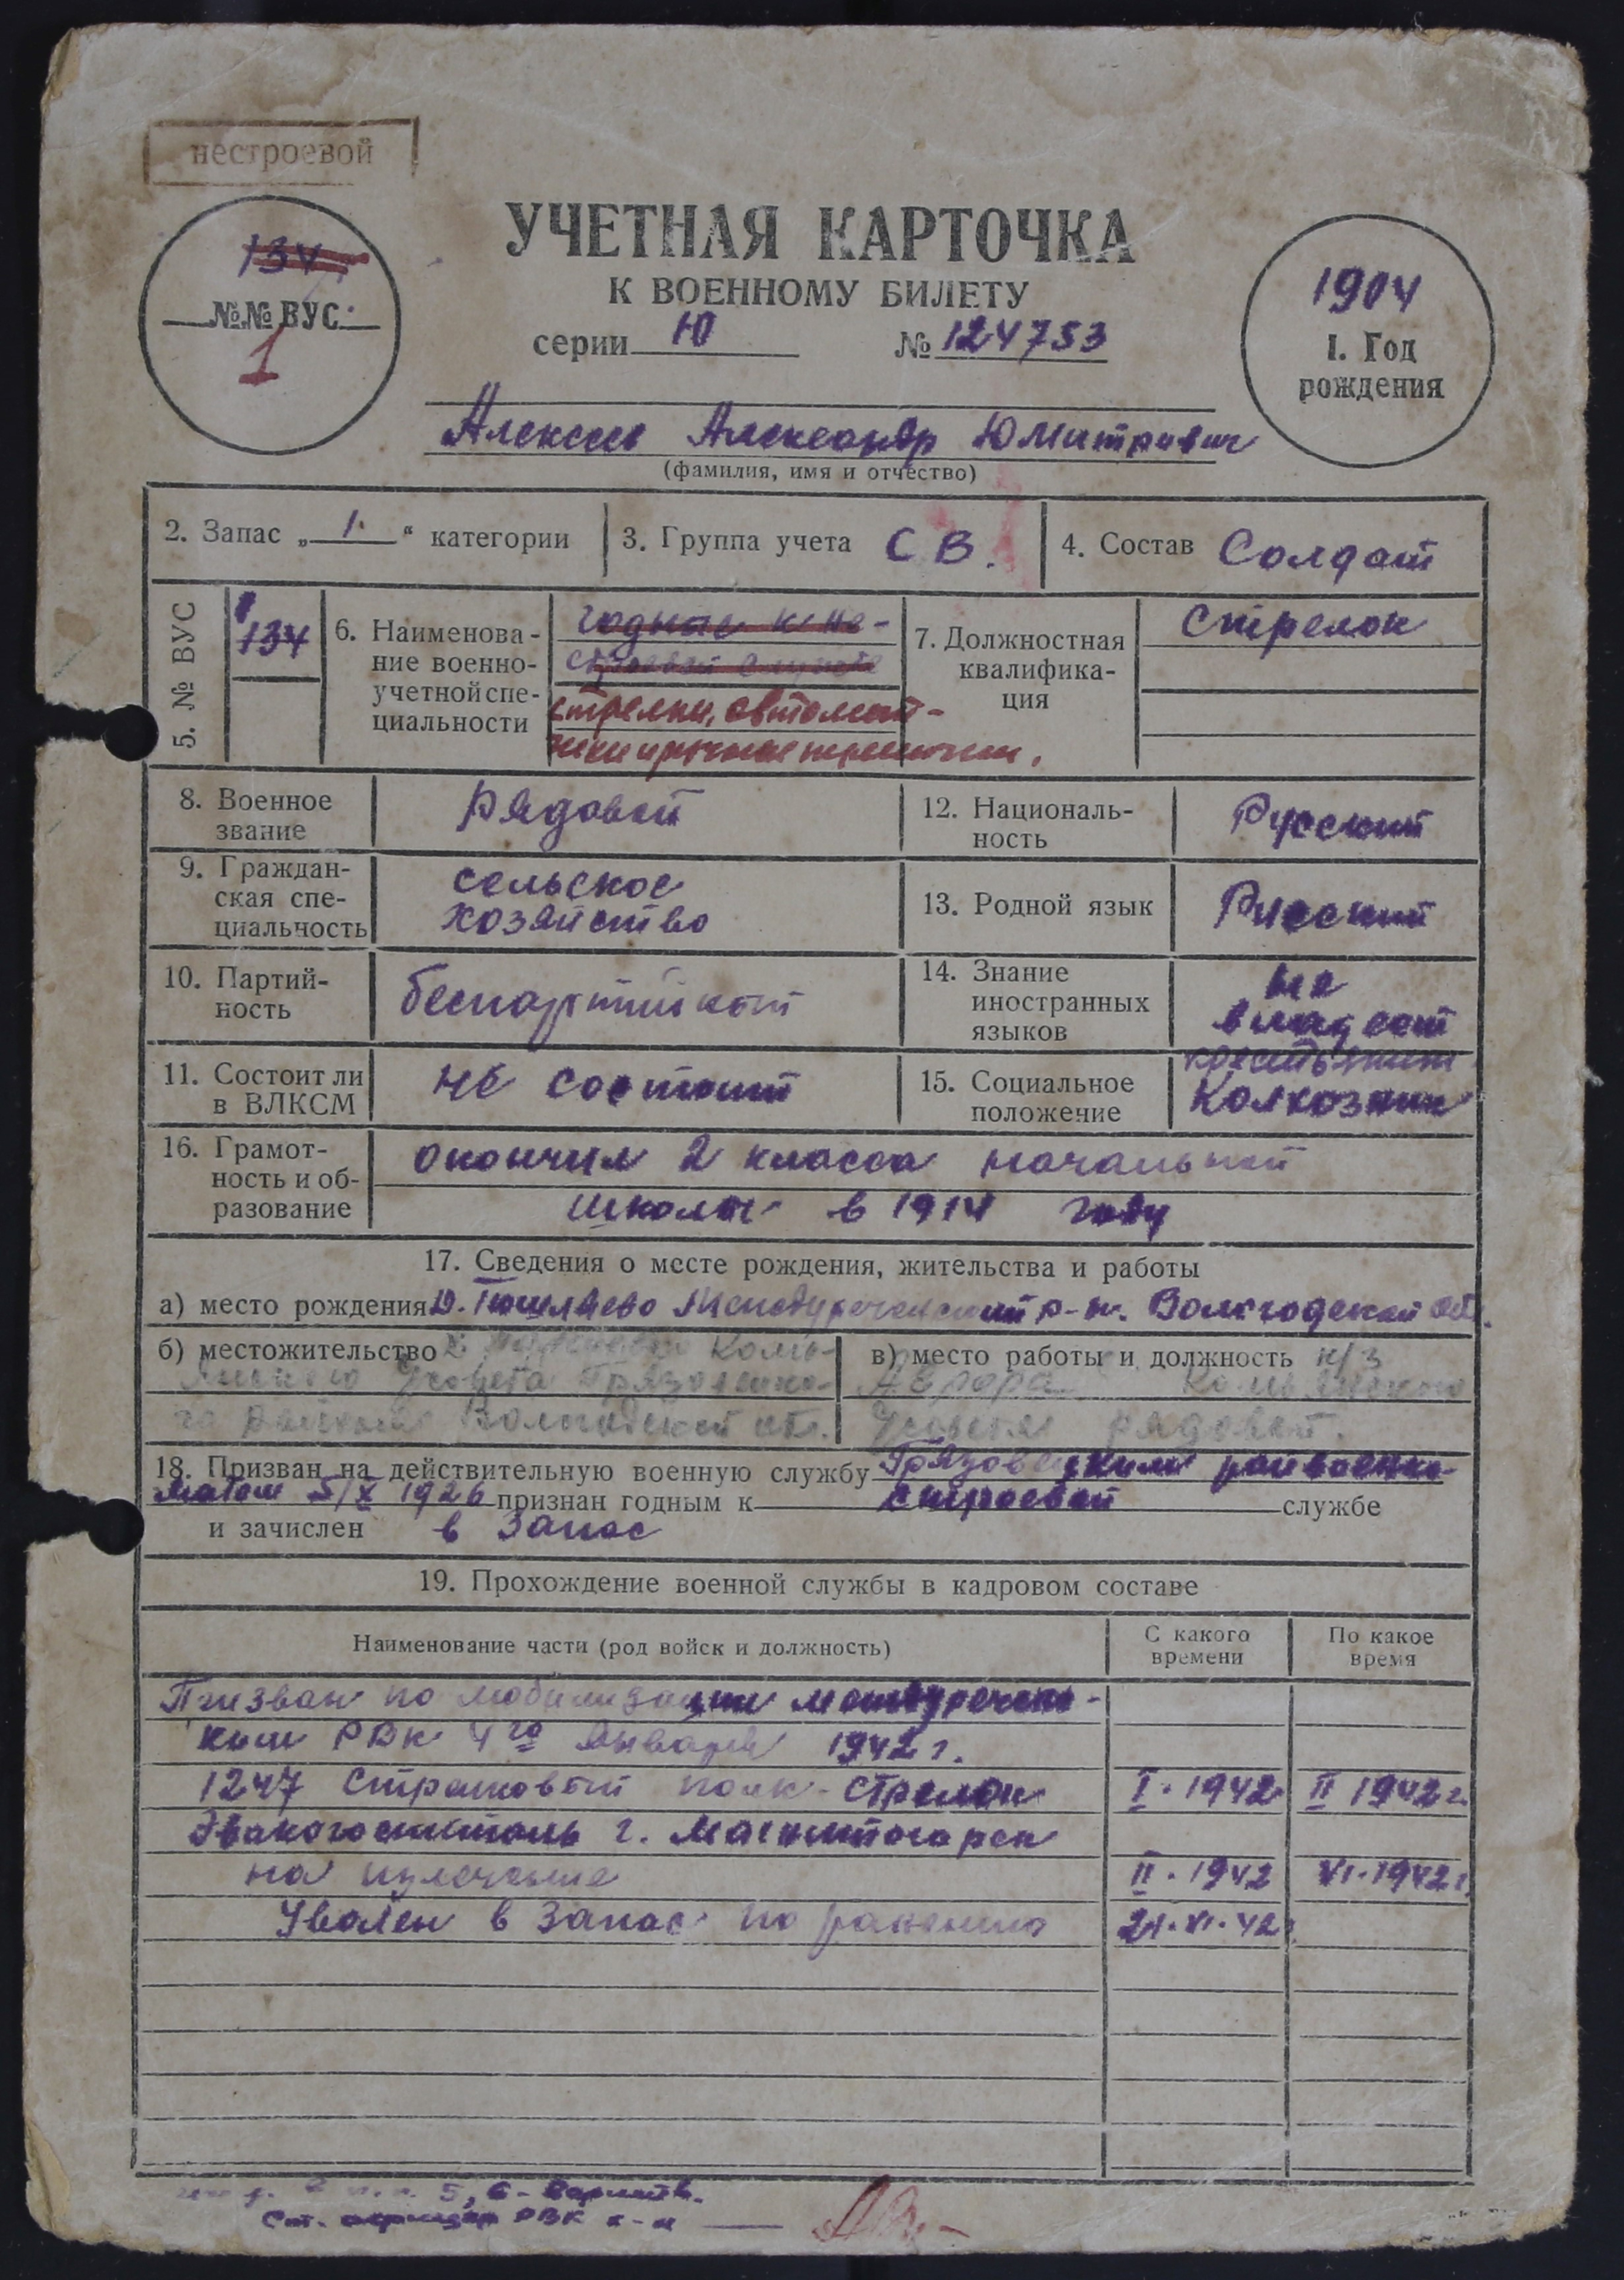 нестроевой
УЧЕТНАЯ КАРТОЧКА
К ВОЕННОМУ БИЛЕТУ
серии Ю № 124753
134
№№ ВУС
1
1904
1. Год
рождения
Алексеев Александр Юмитриевич
(фамилия, имя и отчество)
2. Запас „ 1. “ категории
3. Группа учета СВ.
4. Состав Солдат
5. № ВУС
134
6. Наименова-
ние военно-
учетной спе-
циальности
годные к не-
строевой службе
стрелки, автомат-
чики и ручные
7. Должностная
квалифика-
ция
Стрелок
8. Военное
звание
Рядовой
12. Националь-
ность
Русский
9. Граждан-
ская спе-
циальность
сельское
хозяйство
13. Родной язык
Русский
10. Партий-
ность
беспартийный
14. Знание
иностранных
языков
не
владеет
11. Состоит ли
в ВЛКСМ
не состоит
15. Социальное
положение
крестьянин
Колхозник
16. Грамот-
ность и об-
разование
окончил 2 класса начальной
школы в 1914 году
17. Сведения о месте рождения, жительства и работы
а) место рождения Д. Междуреченский р-н. Вологодской обл.
б) местожительство
с/совета Грязовецко-
го района Вологодской обл.
в) место работы и должность к/з
Аврора
с/совета рядовой.
18. Призван на действительную военную службу Грязовецким райвоенко-
матом 5/X 1926 признан годным к строевой службе
и зачислен в Запас
19. Прохождение военной службы в кадровом составе
Наименование части (род войск и должность)
С какого
времени
По какое
время
Призван по мобилизации междуреченс-
ким РВК 4го января 1942 г.
1247 Стрелковый полк - стрелок I. 1942 II 1942 г.
Эвакогоспиталь г. Магнитогорск
на излечение II. 1942 VI. 1942 г.
Уволен в Запас по ранению 21. VI. 42 г.
5, 6 -
РВК к-н